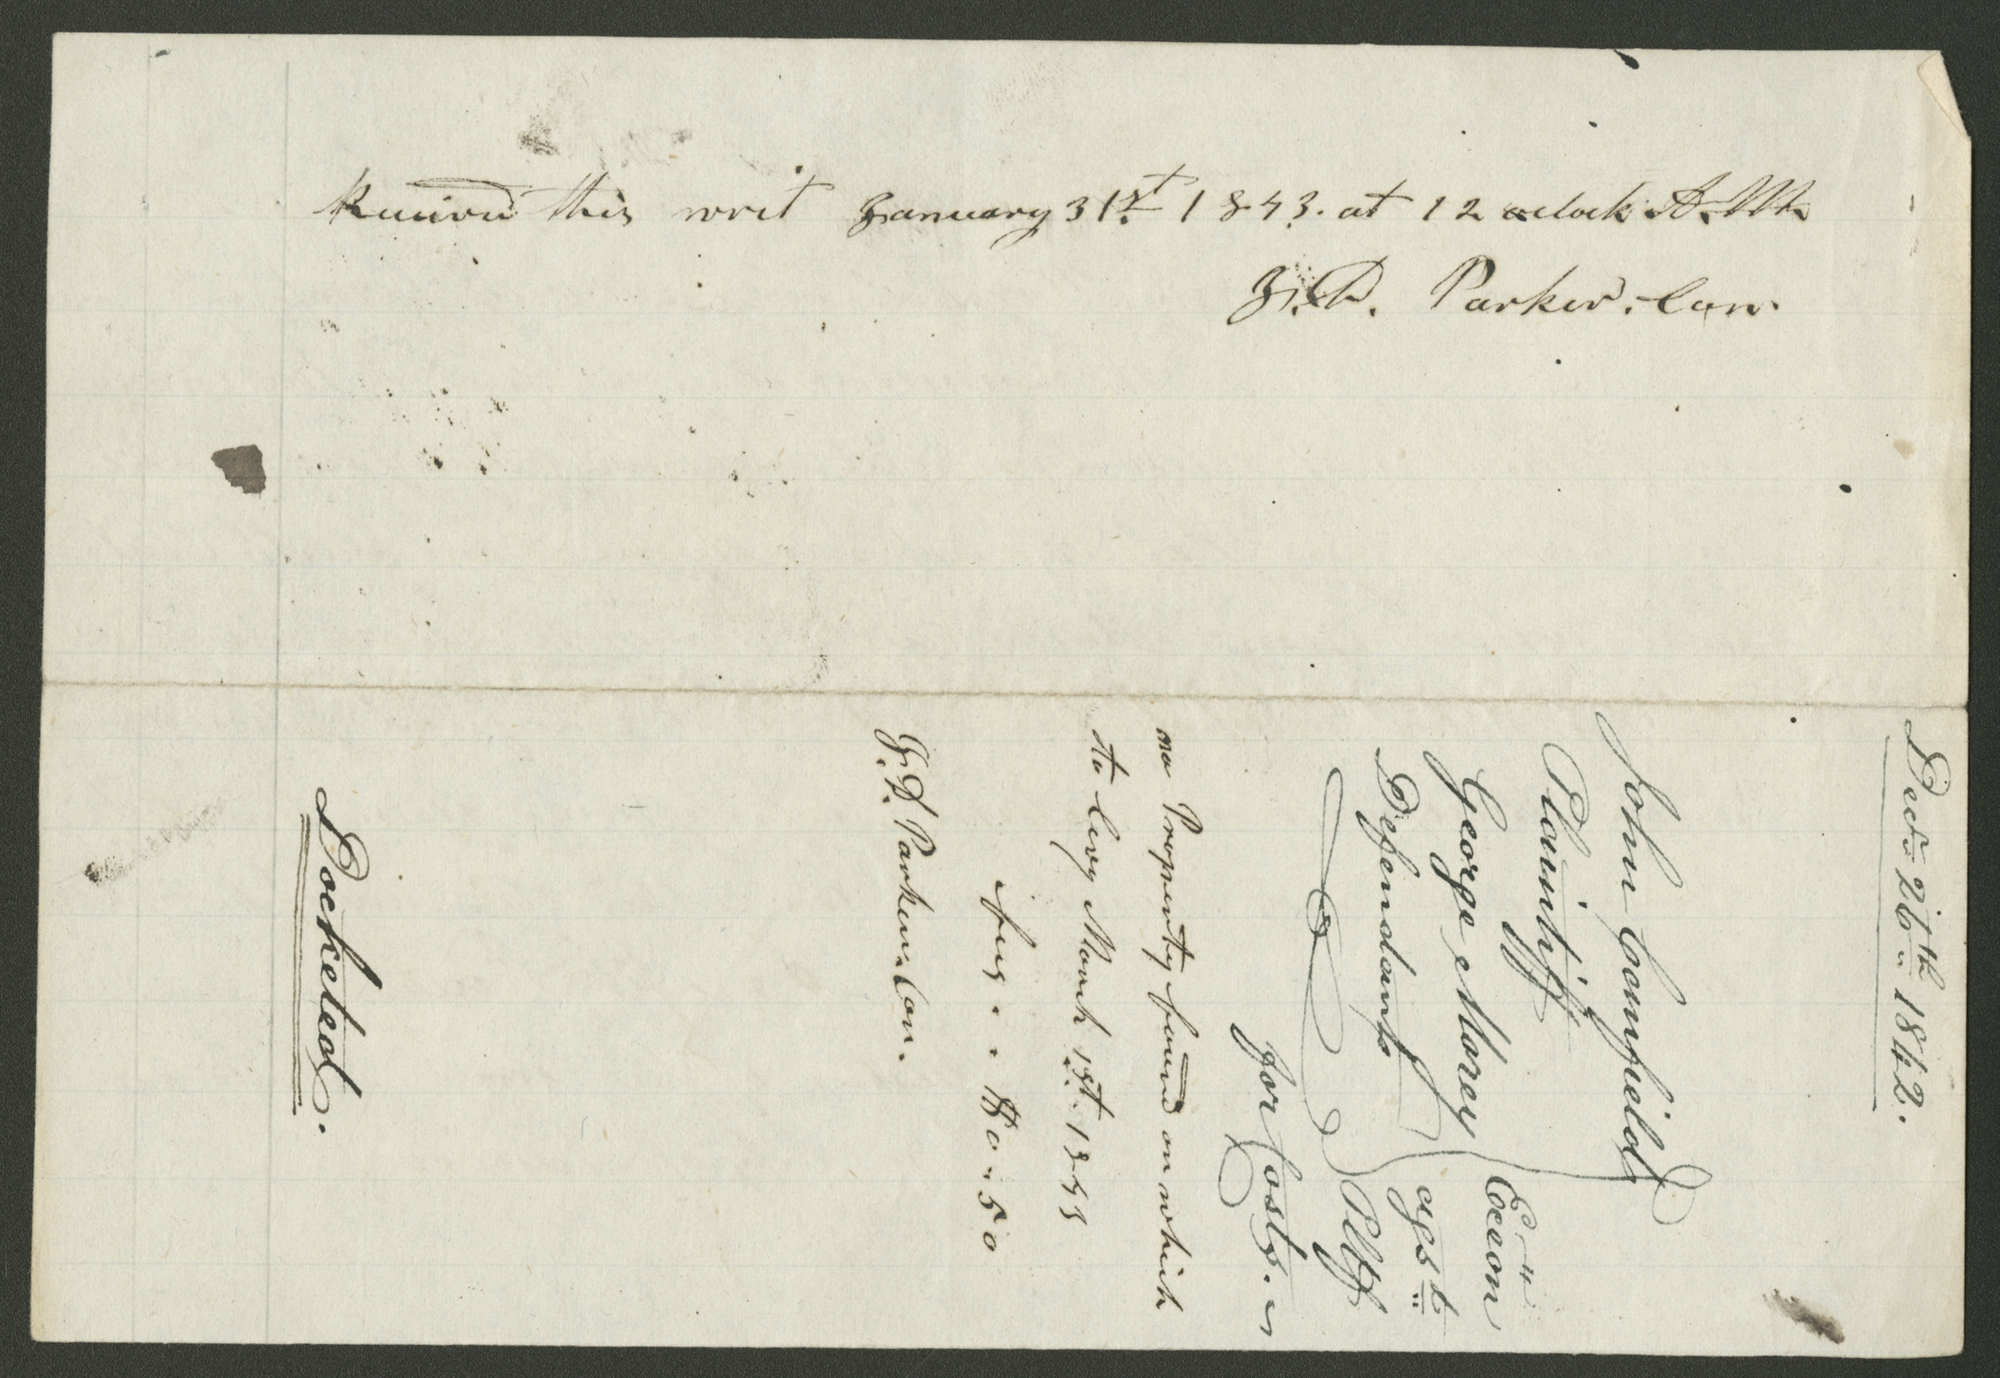 Received this writ January 31st 1843. at 12 oclock A.M.
J. D. Parker. Con.
Decr 26th 1842.
John Camfield
Plaintiff
George Morey
Defendants
Excon
agst
Pltff
for Costs.
no Property found on which
to levy March 1st. 1843
fees. . $0.50
J. D. Parker. Con.
Docketed.